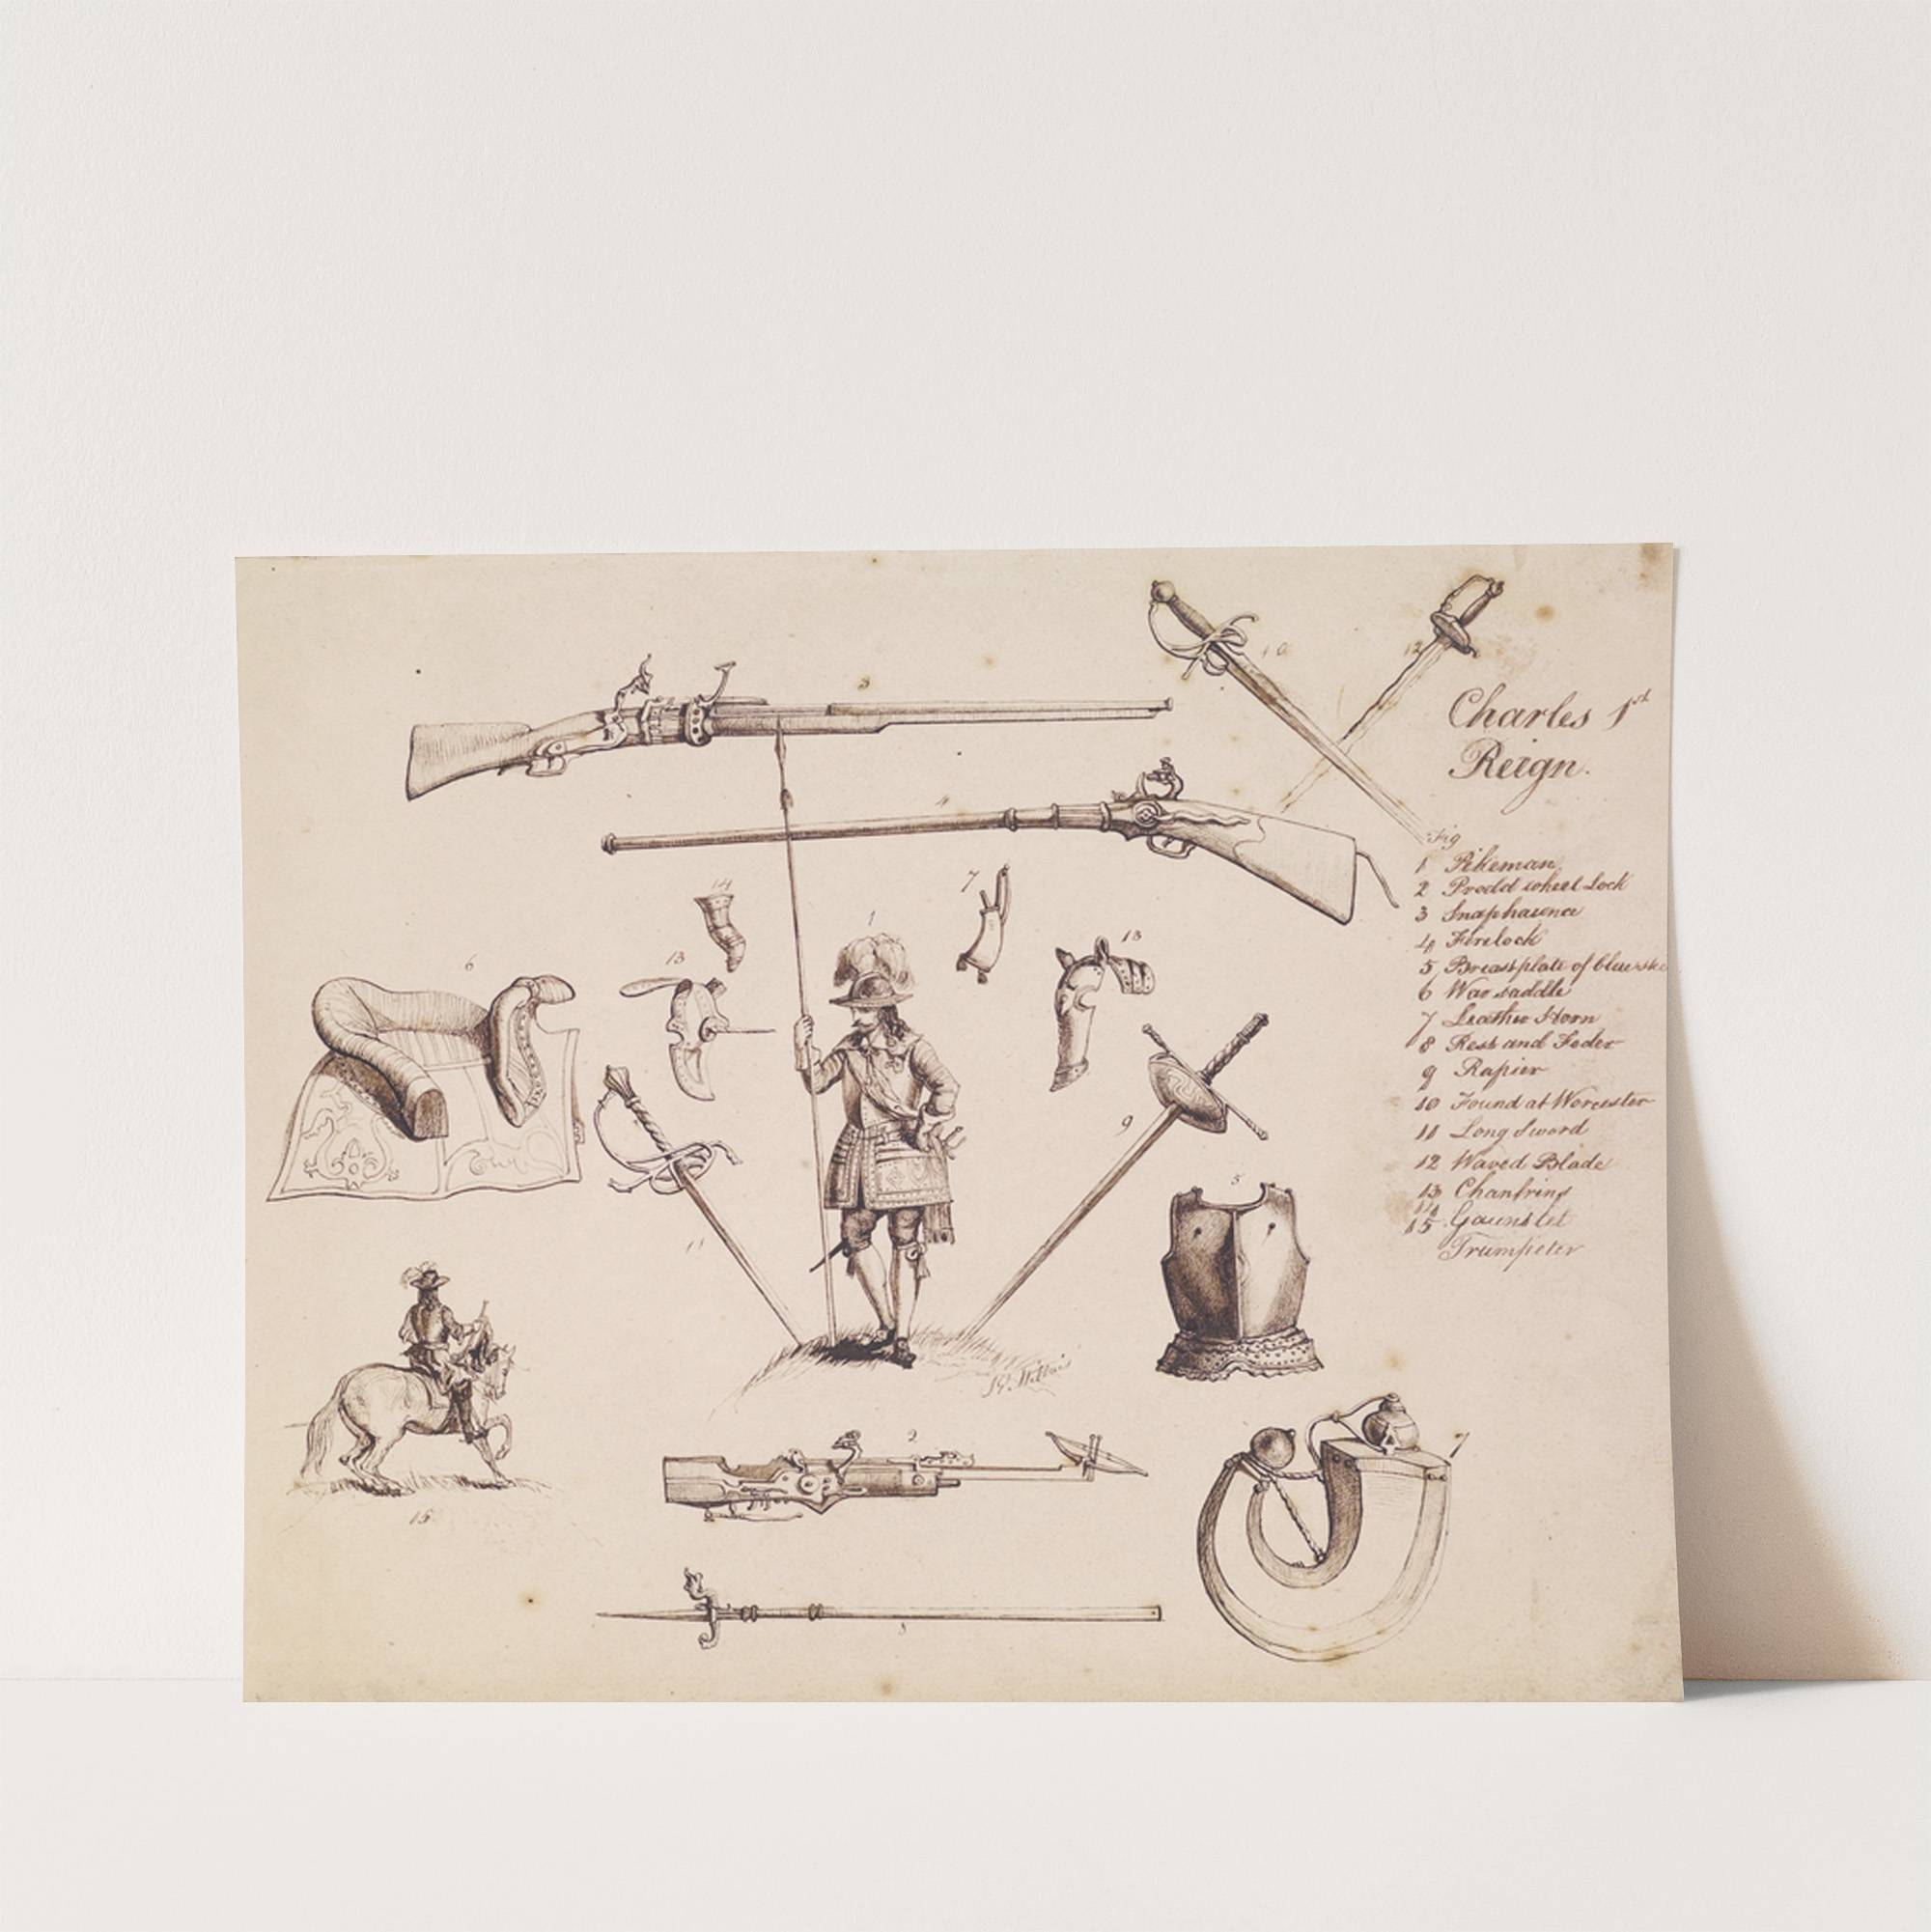 3
10
12
Charles 1st
Reign.
4
Fig
1 Pikeman
2 Prodd wheel Lock
3 Snaphaunce
4 Firelock
5 Breastplate of blue
6 War saddle
7 Leather Horn
8 Rest and Feder
9 Rapier
10 Found at Worcester
11 Long Sword
12 Waved Blade
13 Chanfrins
14 Gauntlet
15
Trumpeter
14
7
1
13
13
6
9
5
11
2
7
15
8